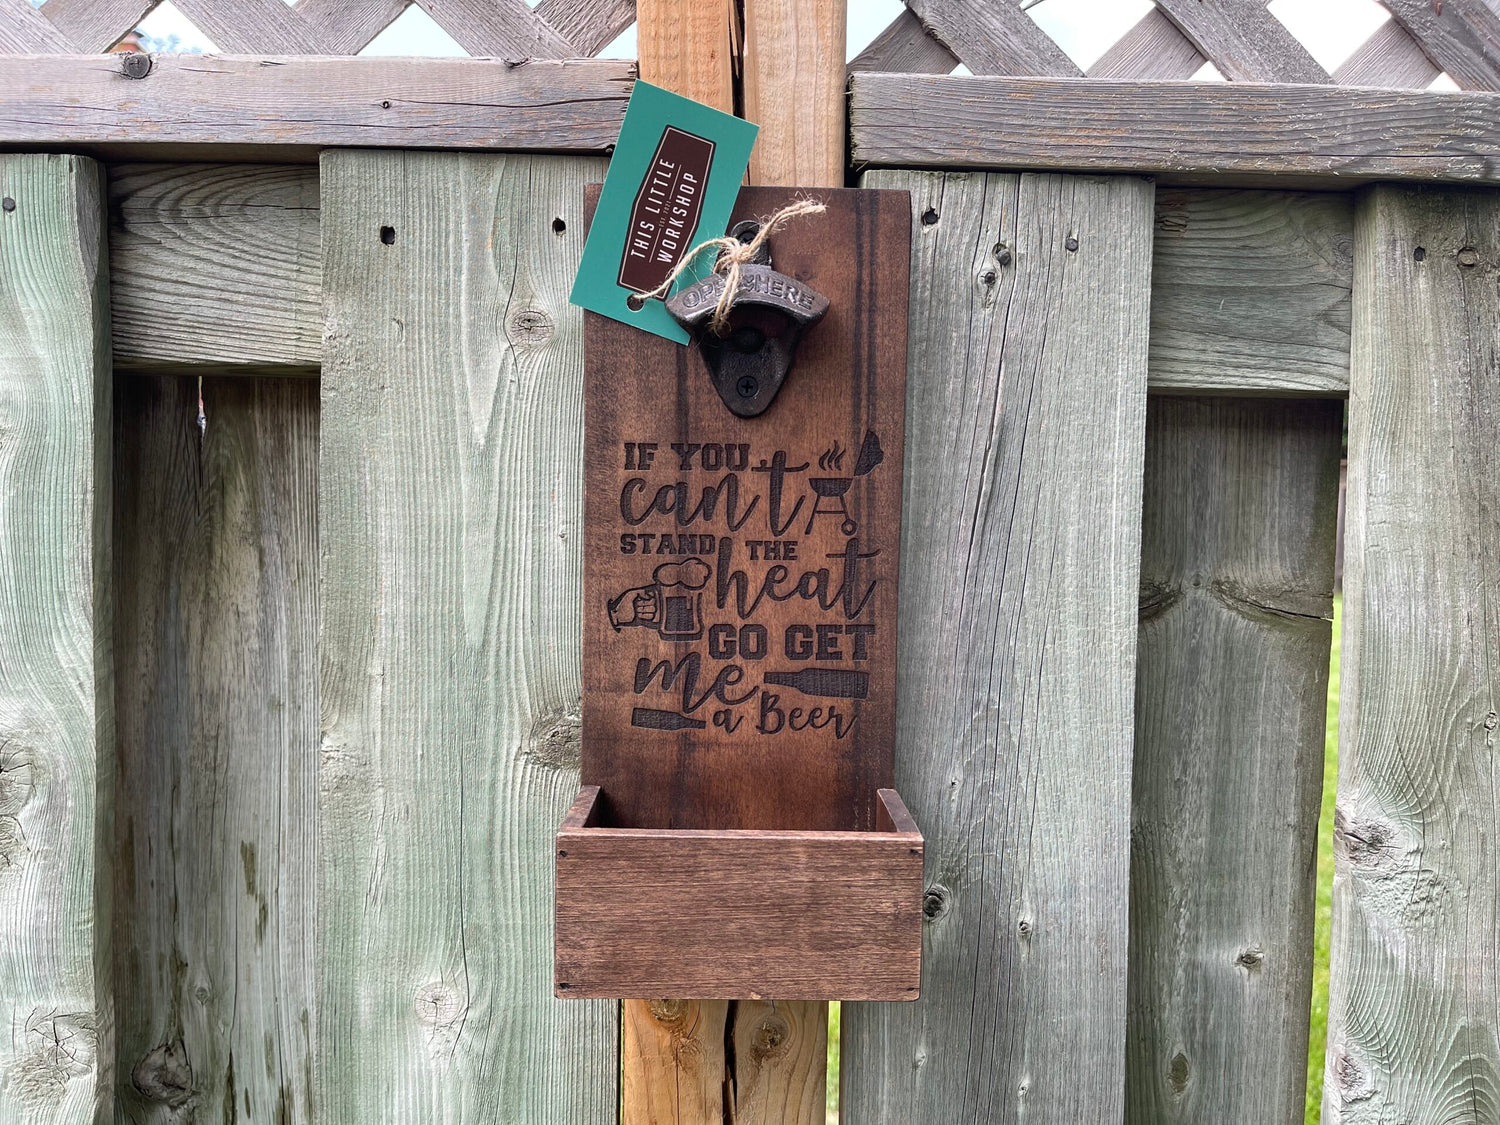 THIS LITTLE
EST. 2021
WORKSHOP
OPEN HERE
IF YOU
can't
STAND THE
heat
GO GET
me
a Beer